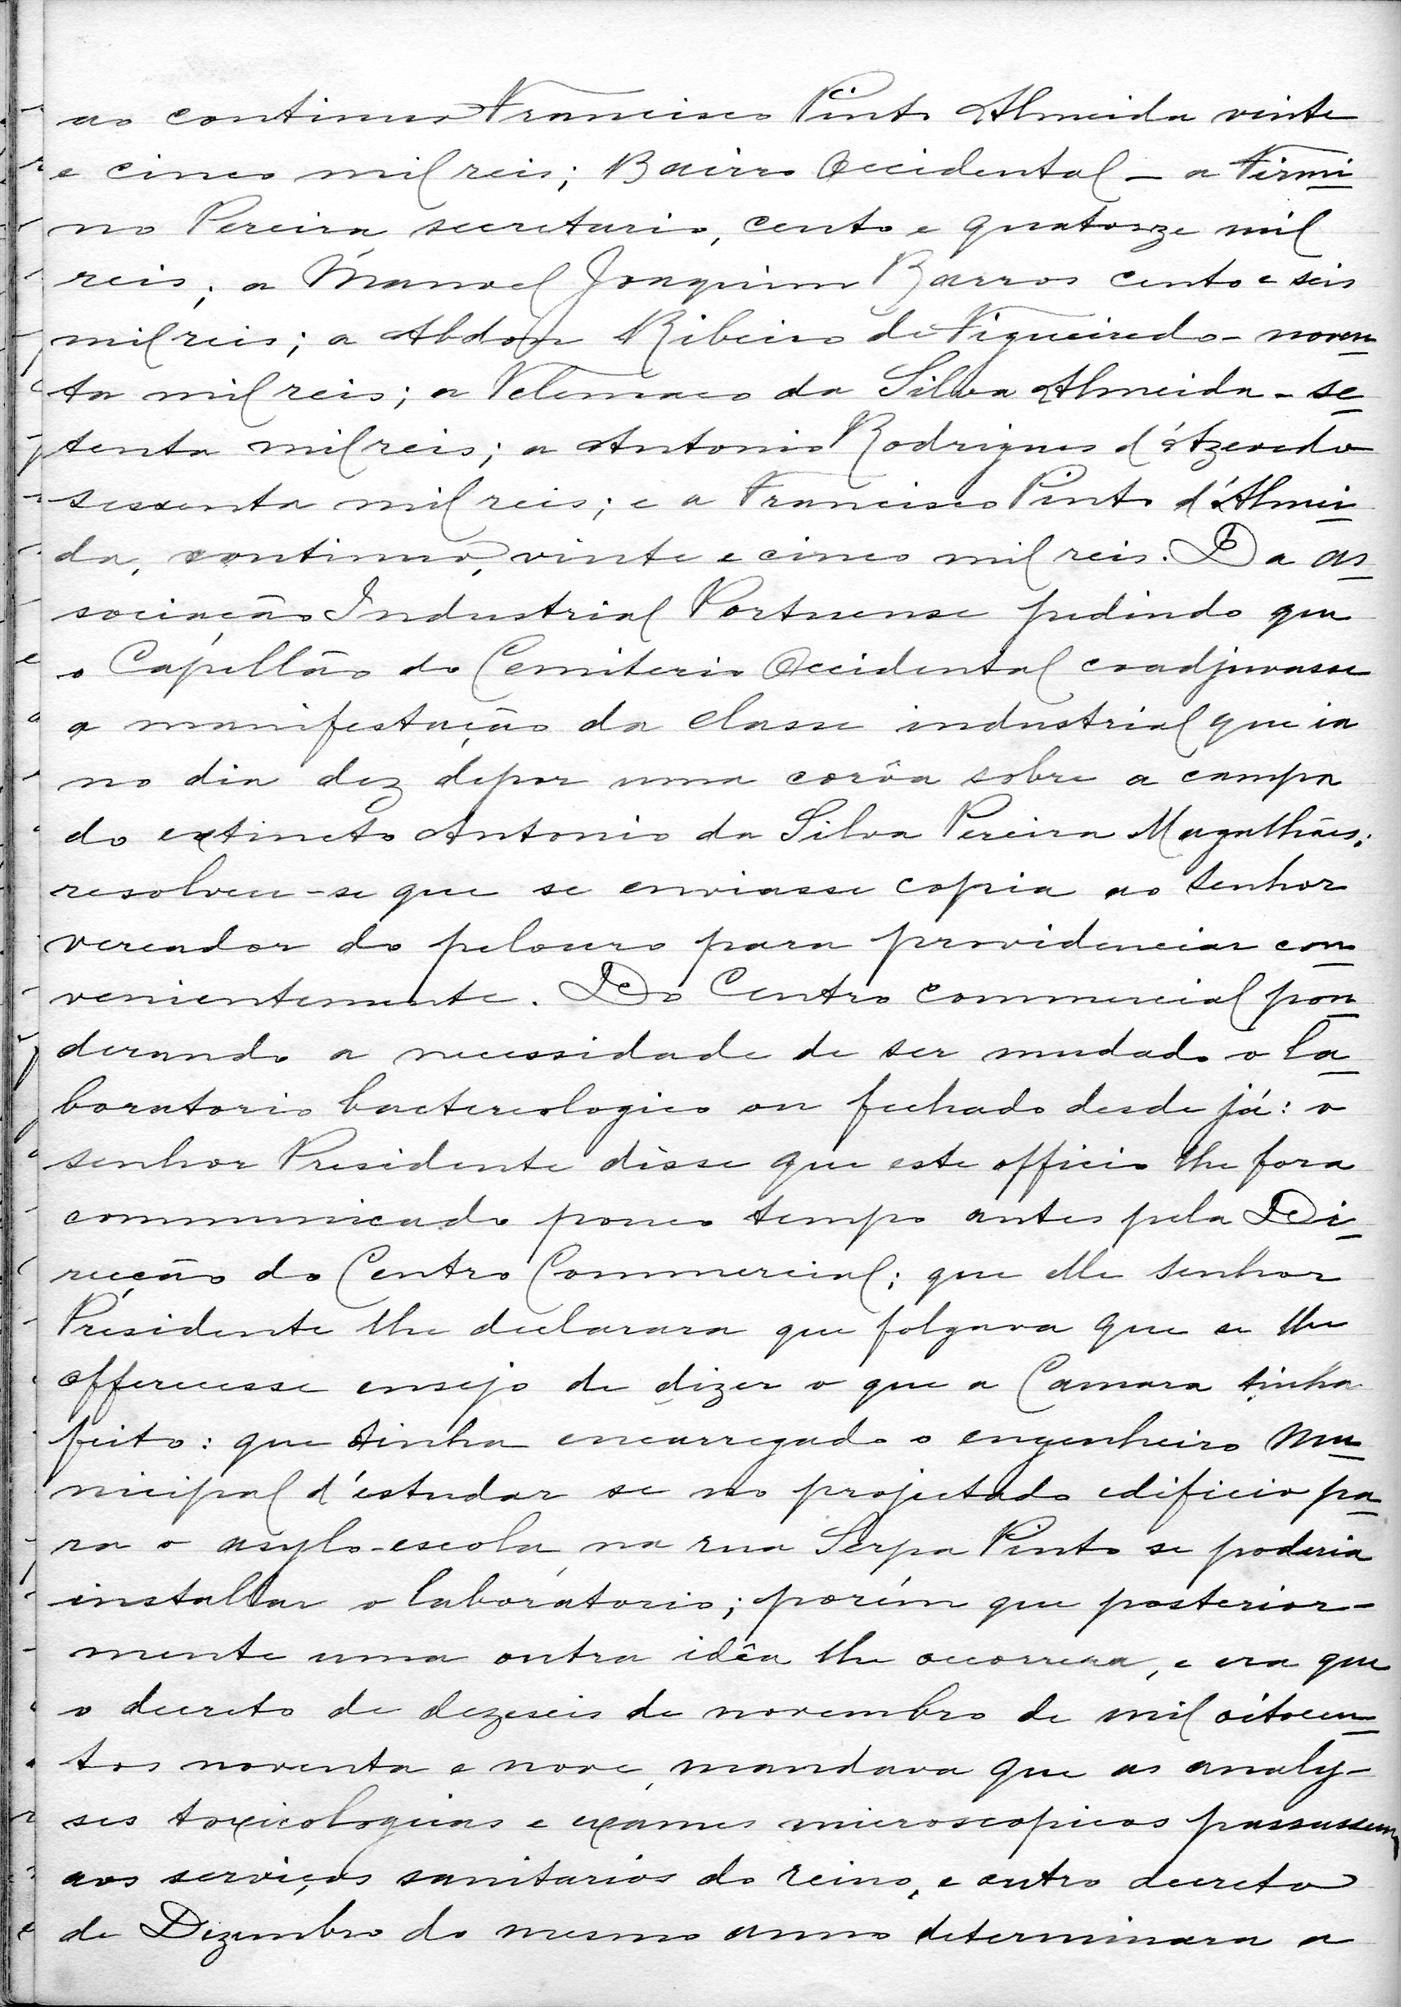 ao continuo Francisco Pinto Almeida vinte
e cinco mil reis; Bairro Occidental – a Firmi
no Pereira secretario, cento e quatorze mil
reis; a Manoel Joaquim Barros cento e seis
mil reis; a Abdon Ribeiro de Figueiredo - noven
ta mil reis; a Telemaco da Silva Almeida - se
tenta mil reis; a Antonio Rodrigues d'Azevedo
sessenta mil reis; e a Francisco Pinto d'Almei
da, continuo, vinte e cinco mil reis. Da as
sociação Industrial Portuense pedindo que
o Capellão do Cemiterio Occidental coadjuvasse
a manifestação da classe industrial que ia
no dia dez depor uma corôa sobre a campa
do extincto Antonio da Silva Pereira Magalhães;
resolveu-se que se enviasse copia ao senhor
vereador do pelouro para providenciar con
venientemente. Do Centro Commercial pon
derando a necessidade de ser mudado o la
boratorio bactereologico ou fechado desde já: o
senhor Presidente disse que este officio lhe fora
communicado pouco tempo antes pela Di
recção do Centro Commercial; que elle senhor
Presidente lhe declarara que folgava que se lhe
offerecesse ensejo de dizer o que a Camara tinha
feito: que tinha encarregado o engenheiro mu
nicipal d'estudar se no projectado edificio pa
ra o asylo-escola, na rua Serpa Pinto se poderia
installar o laboratorio; porém que posterior-
mente uma outra idêa lhe occorrera, e era que
o decreto de dezeseis de novembro de mil oitocen
tos noventa e nove, mandava que as analy-
ses toxicologicas e exames microscopicos passassem
aos serviços sanitarios do reino, e outro decreto
de Dezembro do mesmo anno determinara a